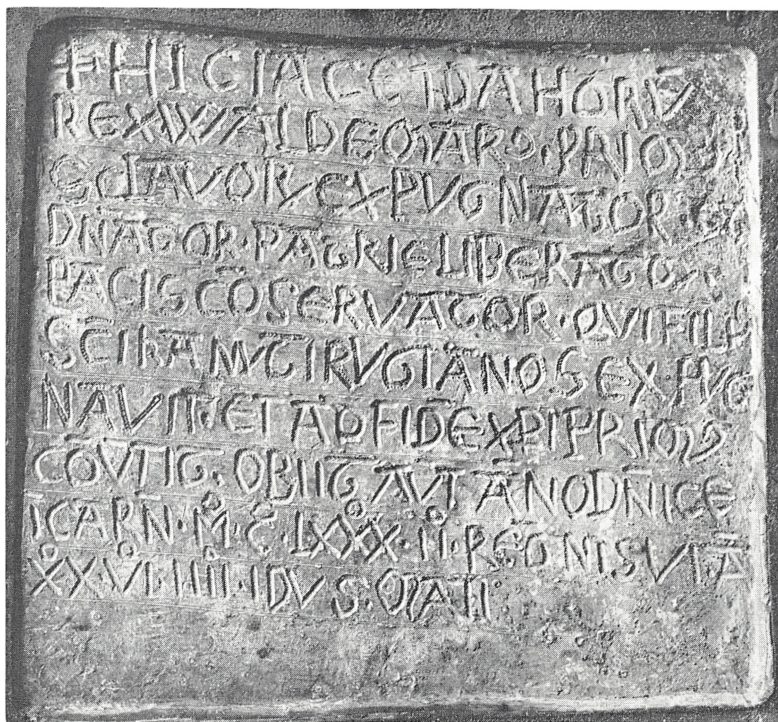 + HIC IACET DANORV
REX WALDEMARꝰ · PRIMꝰ
SCLAVORV EXPVGNATOR ·
DNATOR · PATRIE LIBERATOR ·
PACIS CŌSERVATOR · QVI FILIꝰ
SCĪ KANVTI RVGIANOS EXPVG
NAVIT · ET AD FIDĒ XPI PRIMꝰ
CŌVTIT · OBIIT AVT ĀNO DN̄ICE
ĪCARN̄ · M̊ · C̊ · LXXX̊ · II · REGNI SVI Ā
X̊X · VI · IIII · IDVS · MAII